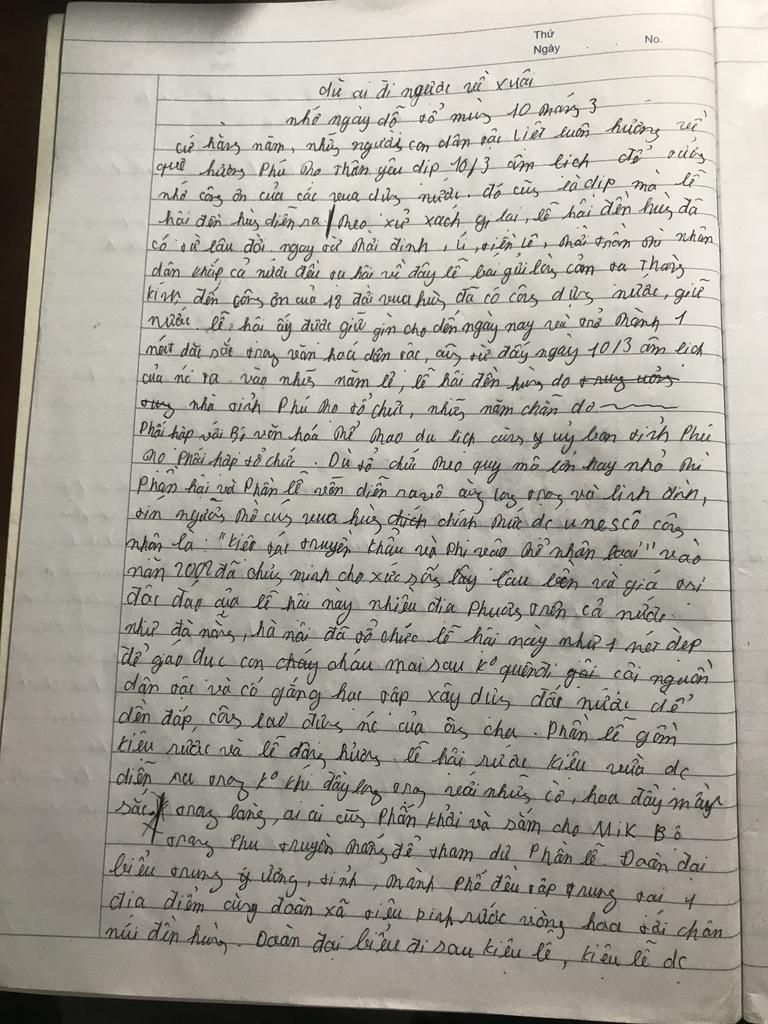 Thứ
Ngày
No.
dù ai đi ngược về xuôi
nhớ ngày dỗ tổ mùng 10 tháng 3
cứ hằng năm, những người con dân tộc Việt luôn hướng về
quê hương Phú Thọ thân yêu dịp 10/3 âm lịch để tưởng
nhớ công ơn của các vua dựng nước. đó cũng là dịp mà lễ
hội đền hùng diễn ra / theo xử xach gi lai, lễ hội đền hùng đã
có từ lâu đời ngay từ thời đinh, lí, tiền lê, thời trần thì nhân
dân khắp cả nước đều tụ hội về đây lễ bái gửi lòng cảm ta Thành
kính đến công ơn của 18 đời vua hùng đã có công dựng nước, giữ
nước. lễ hội ấy được giữ gìn cho đến ngày nay và trở thành 1
nét đặc sắt trong văn hoá dân tộc, cũng từ đấy ngày 10/3 âm lịch
của nc ra vào những năm lẻ, lễ hội đền hùng do trung ương
nhà tỉnh Phú thọ tổ chức, những năm chẵn do
Phối hợp với Bộ văn hóa thể thao du lịch cùng ỷ uỷ ban tỉnh Phú
thọ Phối hợp tổ chức. Dù tổ chức theo quy mô lớn hay nhỏ thì
Phần hội và Phần lễ vẫn diễn ra vô cùng long trọng và linh đình,
tín ngưỡng thờ cúng vua hùng chích chính thức dc unesco công
nhận là: "kiệt tác truyền khẩu và Phi vâo thể nhân loai" vào
năm 2012 đã chứng minh cho xức sống lây lâu bền và giá trị
đôc đao của lễ hội này nhiều địa Phương trên cả nước
như đà nẵng, hà nôi đã tổ chức lễ hội này như 1 nét đẹp
để giáo dục con cháy cháu mai sau k° quên đi gôi côi nguồn
dân tộc và cố gắng học tập xây dựng đất nước để
đền đáp, công lao dựng nc của ông cha. Phần lễ gồm
kiêu rước và lễ dâng hương lễ hội rước kiêu vừa dc
diễn ra trong k° khí đầy long trong với những cờ, hoa đầy mầu
sắc trong làng, ai ai cũng Phấn khởi và sắm cho MìK Bô
trang Phục truyền thống để tham dự Phần lễ. Đoàn đại
biểu trung ỷ ương, tỉnh, thành Phố đều tập trung tại 1
địa điểm cùng đoàn xã tiêu binh rước vòng hoa tới chân
núi đền hùng. Đoàn đại biểu đi sau kiêu lễ, kiêu lễ dc